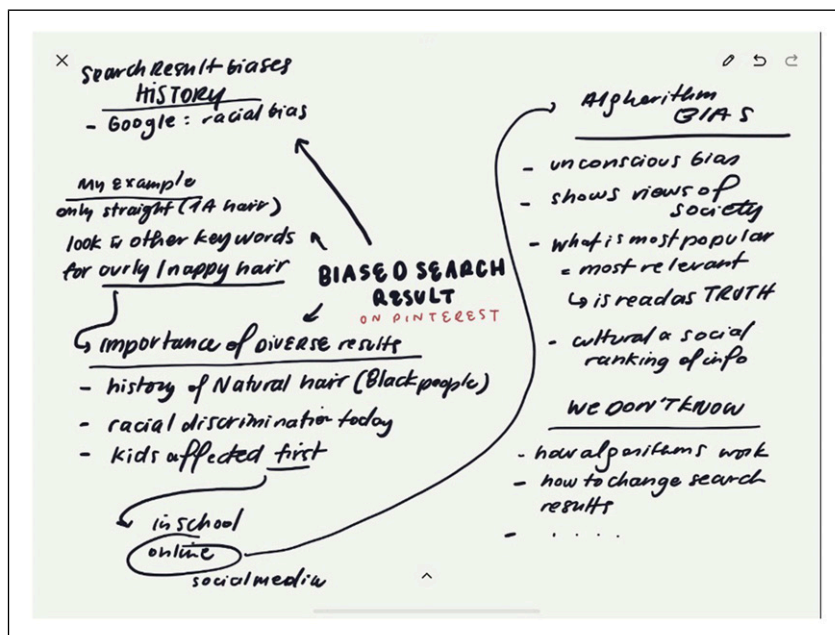 Search Result biases
HISTORY
- Google : racial bias
My Example
only straight (1A hair)
look to other keywords
for curly / nappy hair
BIASED SEARCH
RESULT
ON PINTEREST
importance of DIVERSE results
- history of Natural hair (Black people)
- racial discrimination today
- kids affected first
in school
online
social media
Algherithm
BIAS
- unconscious bias
- shows views of
society
- what is most popular
= most relevant
↳ is read as TRUTH
- cultural & social
ranking of info
WE DON'T KNOW
- how algorithms work
- how to change search
results
- . . . . .